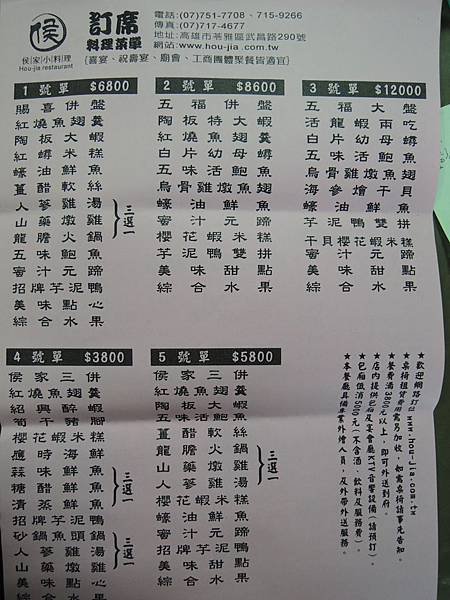 侯
侯家小料理
Hou-jia restaurant
訂席
料理菜單
電話:(07)751-7708、715-9266
傳真:(07)717-4677
地址:高雄市苓雅區武昌路290號
網站:www.hou-jia.com.tw
{喜宴、祝壽宴、廟會、工商團體聚餐皆適宜}
1 號單 $6800
賜喜併盤
紅燒魚翅羹
陶板大蝦
紅蟳米糕
蠔油鮮魚
薑醋軟絲
人蔘雞湯
山藥燉雞
龍膽火鍋
三選一
五味鮑魚
蜜汁元蹄
招牌芋泥鴨
美味點心
綜合水果
2 號單 $8600
五福併盤
陶板特大蝦
紅燒魚翅羹
白片幼母蟳
五味活鮑魚
烏骨雞燉魚翅
蠔油鮮魚
蜜汁元蹄
櫻花蝦米糕
芋泥鴨雙拼
美味甜點
綜合水果
3 號單 $12000
五福拼盤
活龍蝦兩吃
白片幼母蟳
五味活鮑魚
烏骨雞燉魚翅
海參燴干貝
蠔油鮮魚
芋泥鴨雙拼
干貝櫻花蝦米糕
蜜汁元蹄
美味甜點
綜合水果
4 號單 $3800
侯家三併
紅燒魚翅羹
紹興醉蝦
筍干豬腳
櫻花蝦米糕
應時海鮮
蒜味鮮魚
糖醋鮮魚
清蒸鮮魚
三選一
招牌芋泥鴨
砂鍋魚頭
人蔘雞湯
山藥燉雞
三選一
美味點心
綜合水果
5 號單 $5800
侯家三併
紅燒魚翅羹
陶板大蝦
五味活鮑魚
薑醋軟絲
龍膽火鍋
山藥燉雞
人蔘雞湯
三選一
櫻花蝦米糕
蠔油鮮魚
蜜汁元蹄
招牌芋泥鴨
美味甜點
綜合水果
★歡迎網路訂位 www.hou-jia.com.tw
★桌椅租賃費用需另加收，如需桌椅請事先告知。
★餐費滿3800元以上，即可外送到府。
★店內提供包廂及宴會廳KTV音響設備(請預訂)。
★包廂低消5000元(不含酒、飲料及服務費)。
★本餐廳具備專業外燴人員，及外帶外送服務。